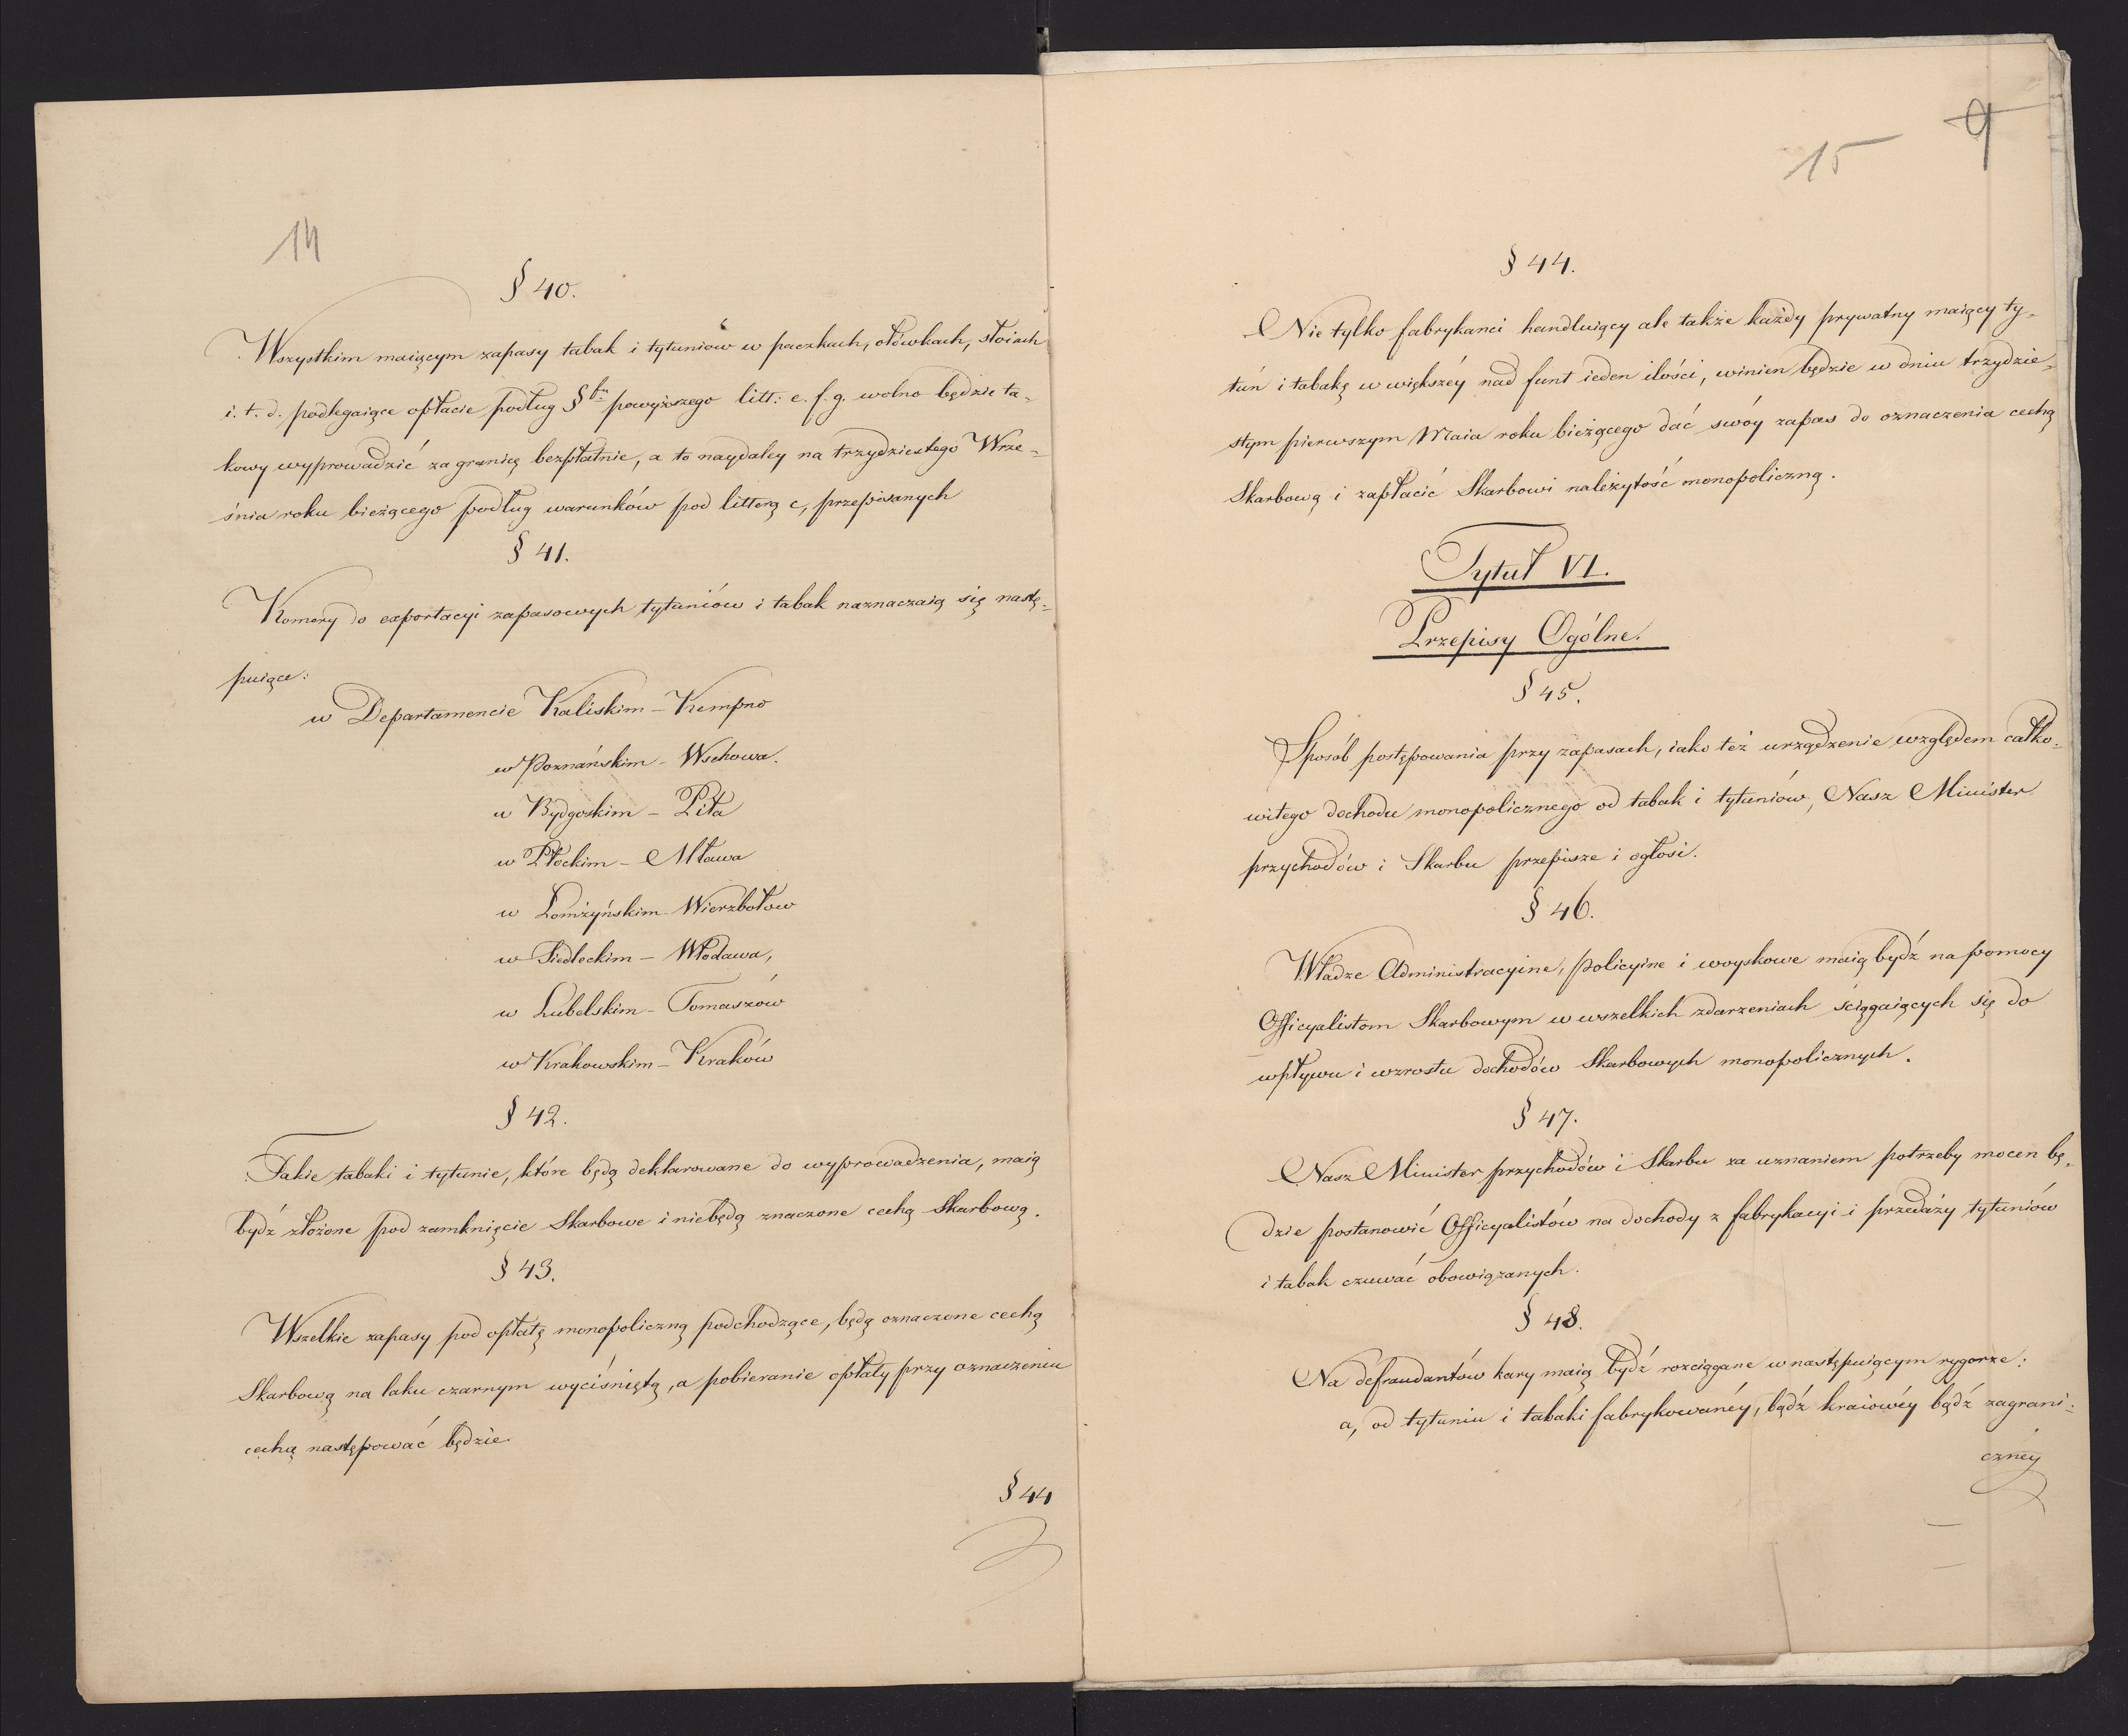 14
§ 40.
Wszystkim maiącym zapasy tabak i tytuniow w paczkach, ołówkach, słoiach
i. t. d. podlegaiące opłacie podług §fu powyższego litt: e. f. g. wolno będzie ta-
kowy wyprowadzić za granicę bezpłatnie, a to naydaley na trzydziestego Wrze-
śnia roku bieżącego podług warunków pod litterą c, przepisanych
§ 41.
Komory do exportacyi zapasowych tytuniów i tabak naznaczaią się nastę-
puiące:
w Departamencie Kaliskim - Kempno
w Poznańskim - Wschowa.
w Bydgoskim - Piła
w Płockim - Mława
w Łomżyńskim - Wierzbołow
w Siedleckim - Włodawa,
w Lubelskim - Tomaszów
w Krakowskim - Kraków
§ 42.
Takie tabaki i tytunie, które będą deklarowane do wyprowadzenia, maią
bydź złożone pod zamknięcie Skarbowe i niebędą znaczone cechą Skarbową.
§ 43.
Wszelkie zapasy pod opłatę monopoliczną podchodzące, będą oznaczone cechą
Skarbową na laku czarnym wyciśniętą, a pobieranie opłaty przy oznaczeniu
cechą następować będzie.
§ 44
15
9
§ 44.
Nie tylko fabrykanci handluiący ale także każdy prywatny maiący ty-
tuń i tabakę w większéy nad funt ieden ilości, winien będzie w dniu trzydzie-
stym pierwszym Maia roku bieżącego dać swóy zapas do oznaczenia cechą
Skarbową i zapłacić Skarbowi należytość monopoliczną.
Tytuł VI.
Przepisy Ogólne.
§ 45.
Sposób postępowania przy zapasach, iako też urządzenie względem całko-
witego dochodu monopolicznego od tabak i tytuniow, Nasz Minister
przychodów i Skarbu przepisze i ogłosi.
§ 46.
Władze Administracyine, policyine i woyskowe maią bydź na pomocy
Officyalistom Skarbowym w wszelkich zdarzeniach ściągaiących się do
wpływu i wzrostu dochodów Skarbowych monopolicznych.
§ 47.
Nasz Minister przychodów i Skarbu za uznaniem potrzeby mocen bę-
dzie postanowić Officyalistów na dochody z fabrykacyi i przedaży tytuniów
i tabak czuwać obowiązanych.
§ 48.
Na defraudantów kary maią bydź rozciągane w następuiącym rygorze:
a, od tytuniu i tabaki fabrykowanéy, bądź kraiowéy bądź zagrani-
cznéy